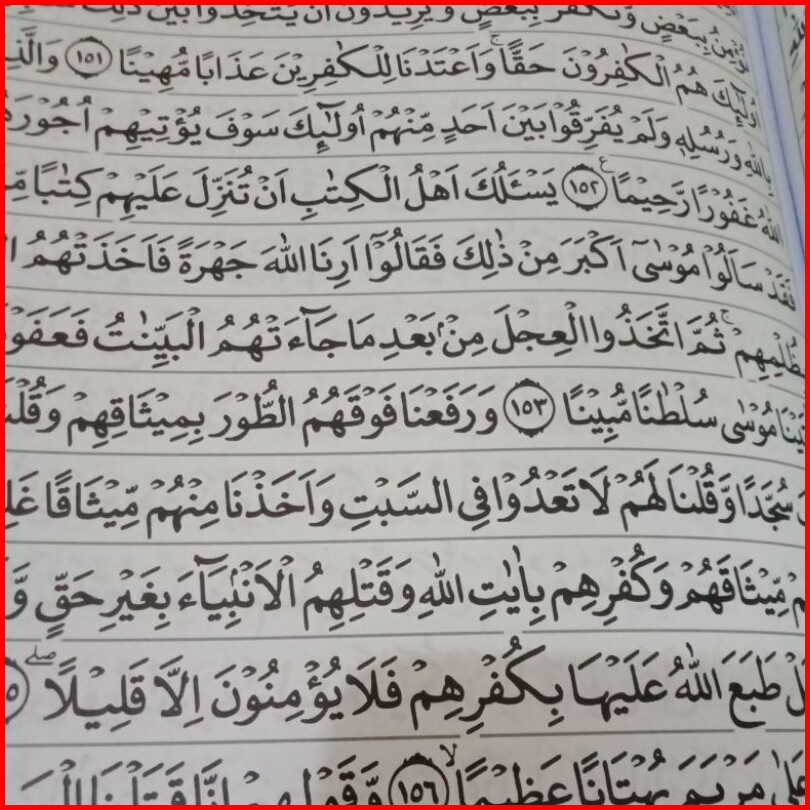 نُؤْمِنُ بِبَعْضٍ وَّنَكْفُرُ بِبَعْضٍ وَّيُرِيْدُوْنَ اَنْ يَّتَّخِذُوْا بَيْنَ ذٰلِكَ
اُولٰۤىِٕكَ هُمُ الْكٰفِرُوْنَ حَقًّا ۚ وَاَعْتَدْنَا لِلْكٰفِرِيْنَ عَذَابًا مُّهِيْنًا ﴿١٥١﴾
بِاللّٰهِ وَرُسُلِهٖ وَلَمْ يُفَرِّقُوْا بَيْنَ اَحَدٍ مِّنْهُمْ اُولٰۤىِٕكَ سَوْفَ يُؤْتِيْهِمْ
اللّٰهُ غَفُوْرًا رَّحِيْمًا ࣖ ﴿١٥٢﴾ يَسْـَٔلُكَ اَهْلُ الْكِتٰبِ اَنْ تُنَزِّلَ عَلَيْهِمْ كِتٰبًا
فَقَدْ سَاَلُوْا مُوْسٰىٓ اَكْبَرَ مِنْ ذٰلِكَ فَقَالُوْٓا اَرِنَا اللّٰهَ جَهْرَةً فَاَخَذَتْهُمُ
بِظُلْمِهِمْ ۚ ثُمَّ اتَّخَذُوا الْعِجْلَ مِنْۢ بَعْدِ مَا جَاۤءَتْهُمُ الْبَيِّنٰتُ
مُوْسٰى سُلْطٰنًا مُّبِيْنًا ﴿١٥٣﴾ وَرَفَعْنَا فَوْقَهُمُ الطُّوْرَ بِمِيْثَاقِهِمْ
سُجَّدًا وَّقُلْنَا لَهُمْ لَا تَعْدُوْا فِى السَّبْتِ وَاَخَذْنَا مِنْهُمْ مِّيْثَاقًا
مِّيْثَاقَهُمْ وَكُفْرِهِمْ بِاٰيٰتِ اللّٰهِ وَقَتْلِهِمُ الْاَنْۢبِيَاۤءَ بِغَيْرِ حَقٍّ
طَبَعَ اللّٰهُ عَلَيْهَا بِكُفْرِهِمْ فَلَا يُؤْمِنُوْنَ اِلَّا قَلِيْلًا ۖ
عَلٰى مَرْيَمَ بُهْتَانًا عَظِيْمًا ۙ ﴿١٥٦﴾ وَّقَوْلِهِمْ اِنَّا قَتَلْنَا